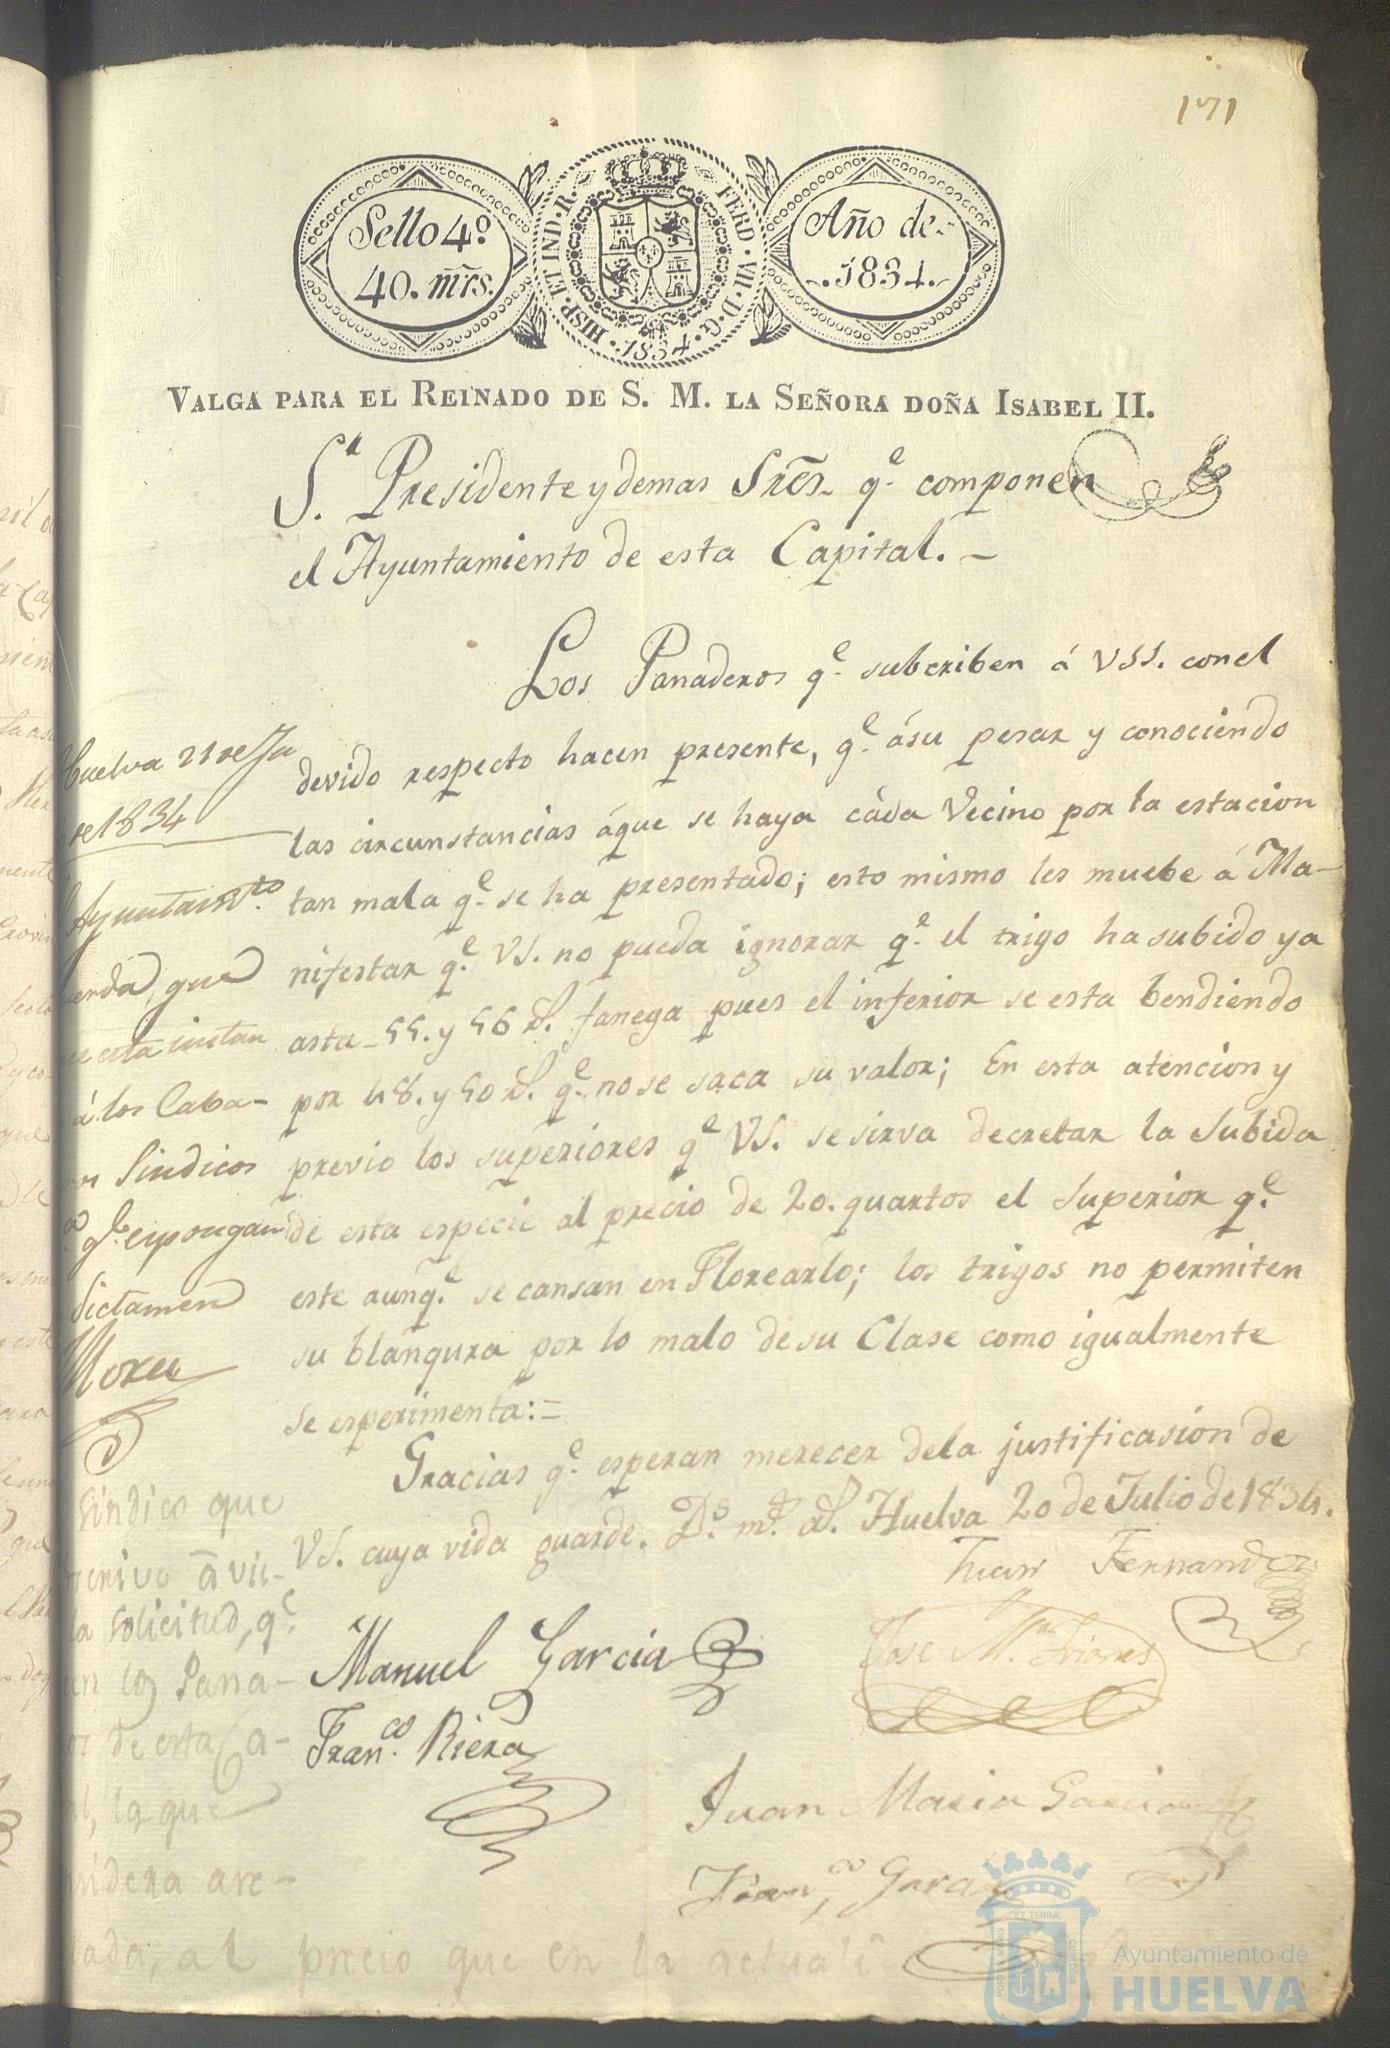 171
Sello 4º
40. mrs.
HISP. ET IND. R. FERD. VII. D. G. 1834.
Año de
1834.
VALGA PARA EL REINADO DE S. M. LA SEÑORA DOÑA ISABEL II.
S.r Presidente y demas Sres. q.e componen
el Ayuntamiento de esta Capital. –
Los Panaderos q.e subcriben á VSS. con el
devido respecto hacen presente, q.e á su pesar y conociendo
las circunstancias á que se haya cáda Vecino por la estacion
tan mala q.e se ha presentado; esto mismo les muebe á Ma-
nifestar q.e VS. no pueda ignorar q.e el trigo ha subido ya
asta 55. y 56 r.s fanega pues el inferior se esta bendiendo
por 48. y 50 r.s q.e no se saca su valor; En esta atencion y
previo los superiores q.e VS. se sirva decretar la Subida
de esta especie al precio de 20. quartos el Superior q.e
este aunq.e se cansan en Florearlo; los trigos no permiten
su blanqura por lo malo de su Clase como igualmente
se esperimenta: =
Gracias q.e esperan merecer de la justificasion de
VS. cuya vida guarde. D.s m.s a.s Huelva 20 de Julio de 1834.
Juan Fernandez
Manuel Garcia
Jose M.a
Fran.co Riera
Juan Maria Garcia
Fran.co
Huelva 21 de Ju
de 1834
Ayuntam.to
que
esta instan
á los Caba-
Sindicos
q.e espongan
dictamen
Mora
Sindico que
á vis-
la solicitud, q.e
los Pana-
de esta Ca-
la que
are-
al precio que en la actuali
ET TERRÆ
Ayuntamiento de
HUELVA